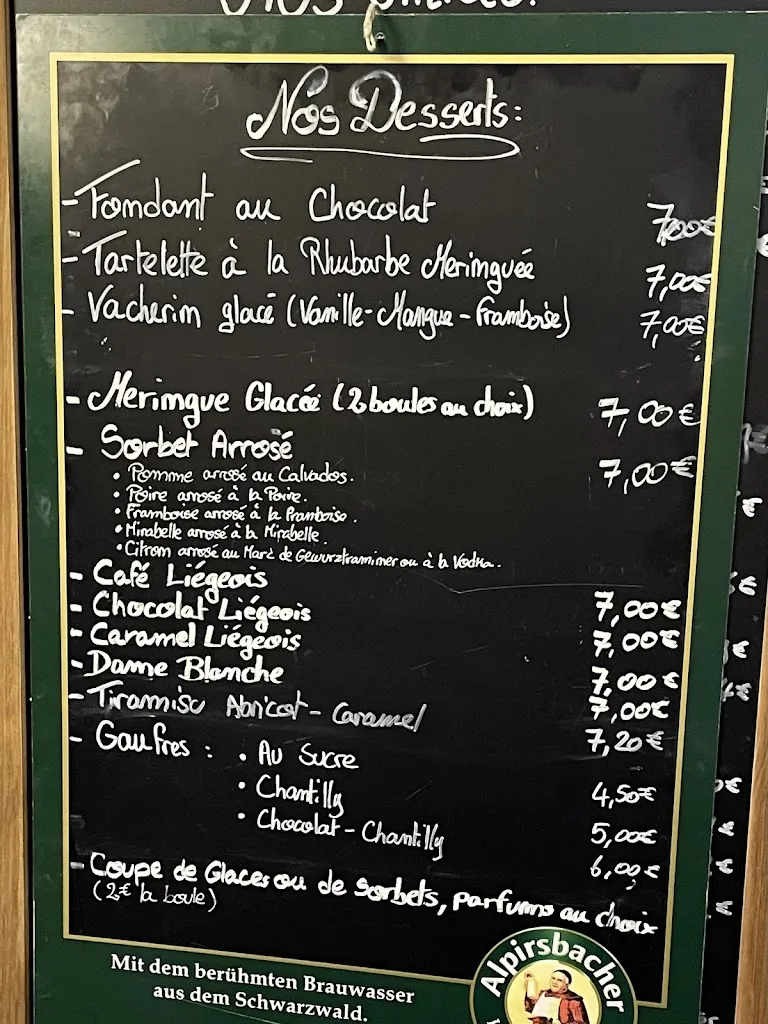 Nos Desserts:
- Fondant au Chocolat 7,00€
- Tartelette à la Rhubarbe Meringuée 7,00€
- Vacherin glacé (Vanille-Mangue-Framboise) 7,00€
- Meringue Glacée (2 boules au choix) 7,00€
- Sorbet Arrosé 7,00€
• Pomme arrosé au Calvados.
• Poire arrosé à la Poire.
• Framboise arrosé à la Framboise.
• Mirabelle arrosé à la Mirabelle.
• Citron arrosé au Marc de Gewurztraminer ou à la Vodka.
- Café Liégeois 7,00€
- Chocolat Liégeois 7,00€
- Caramel Liégeois 7,00€
- Dame Blanche 7,00€
- Tiramisu Abricot - Caramel 7,20€
- Gaufres : • Au Sucre 4,50€
• Chantilly 5,00€
• Chocolat - Chantilly 6,00€
- Coupe de Glaces ou de Sorbets, parfums au choix
(2€ la boule)
Mit dem berühmten Brauwasser
aus dem Schwarzwald.
Alpirsbacher